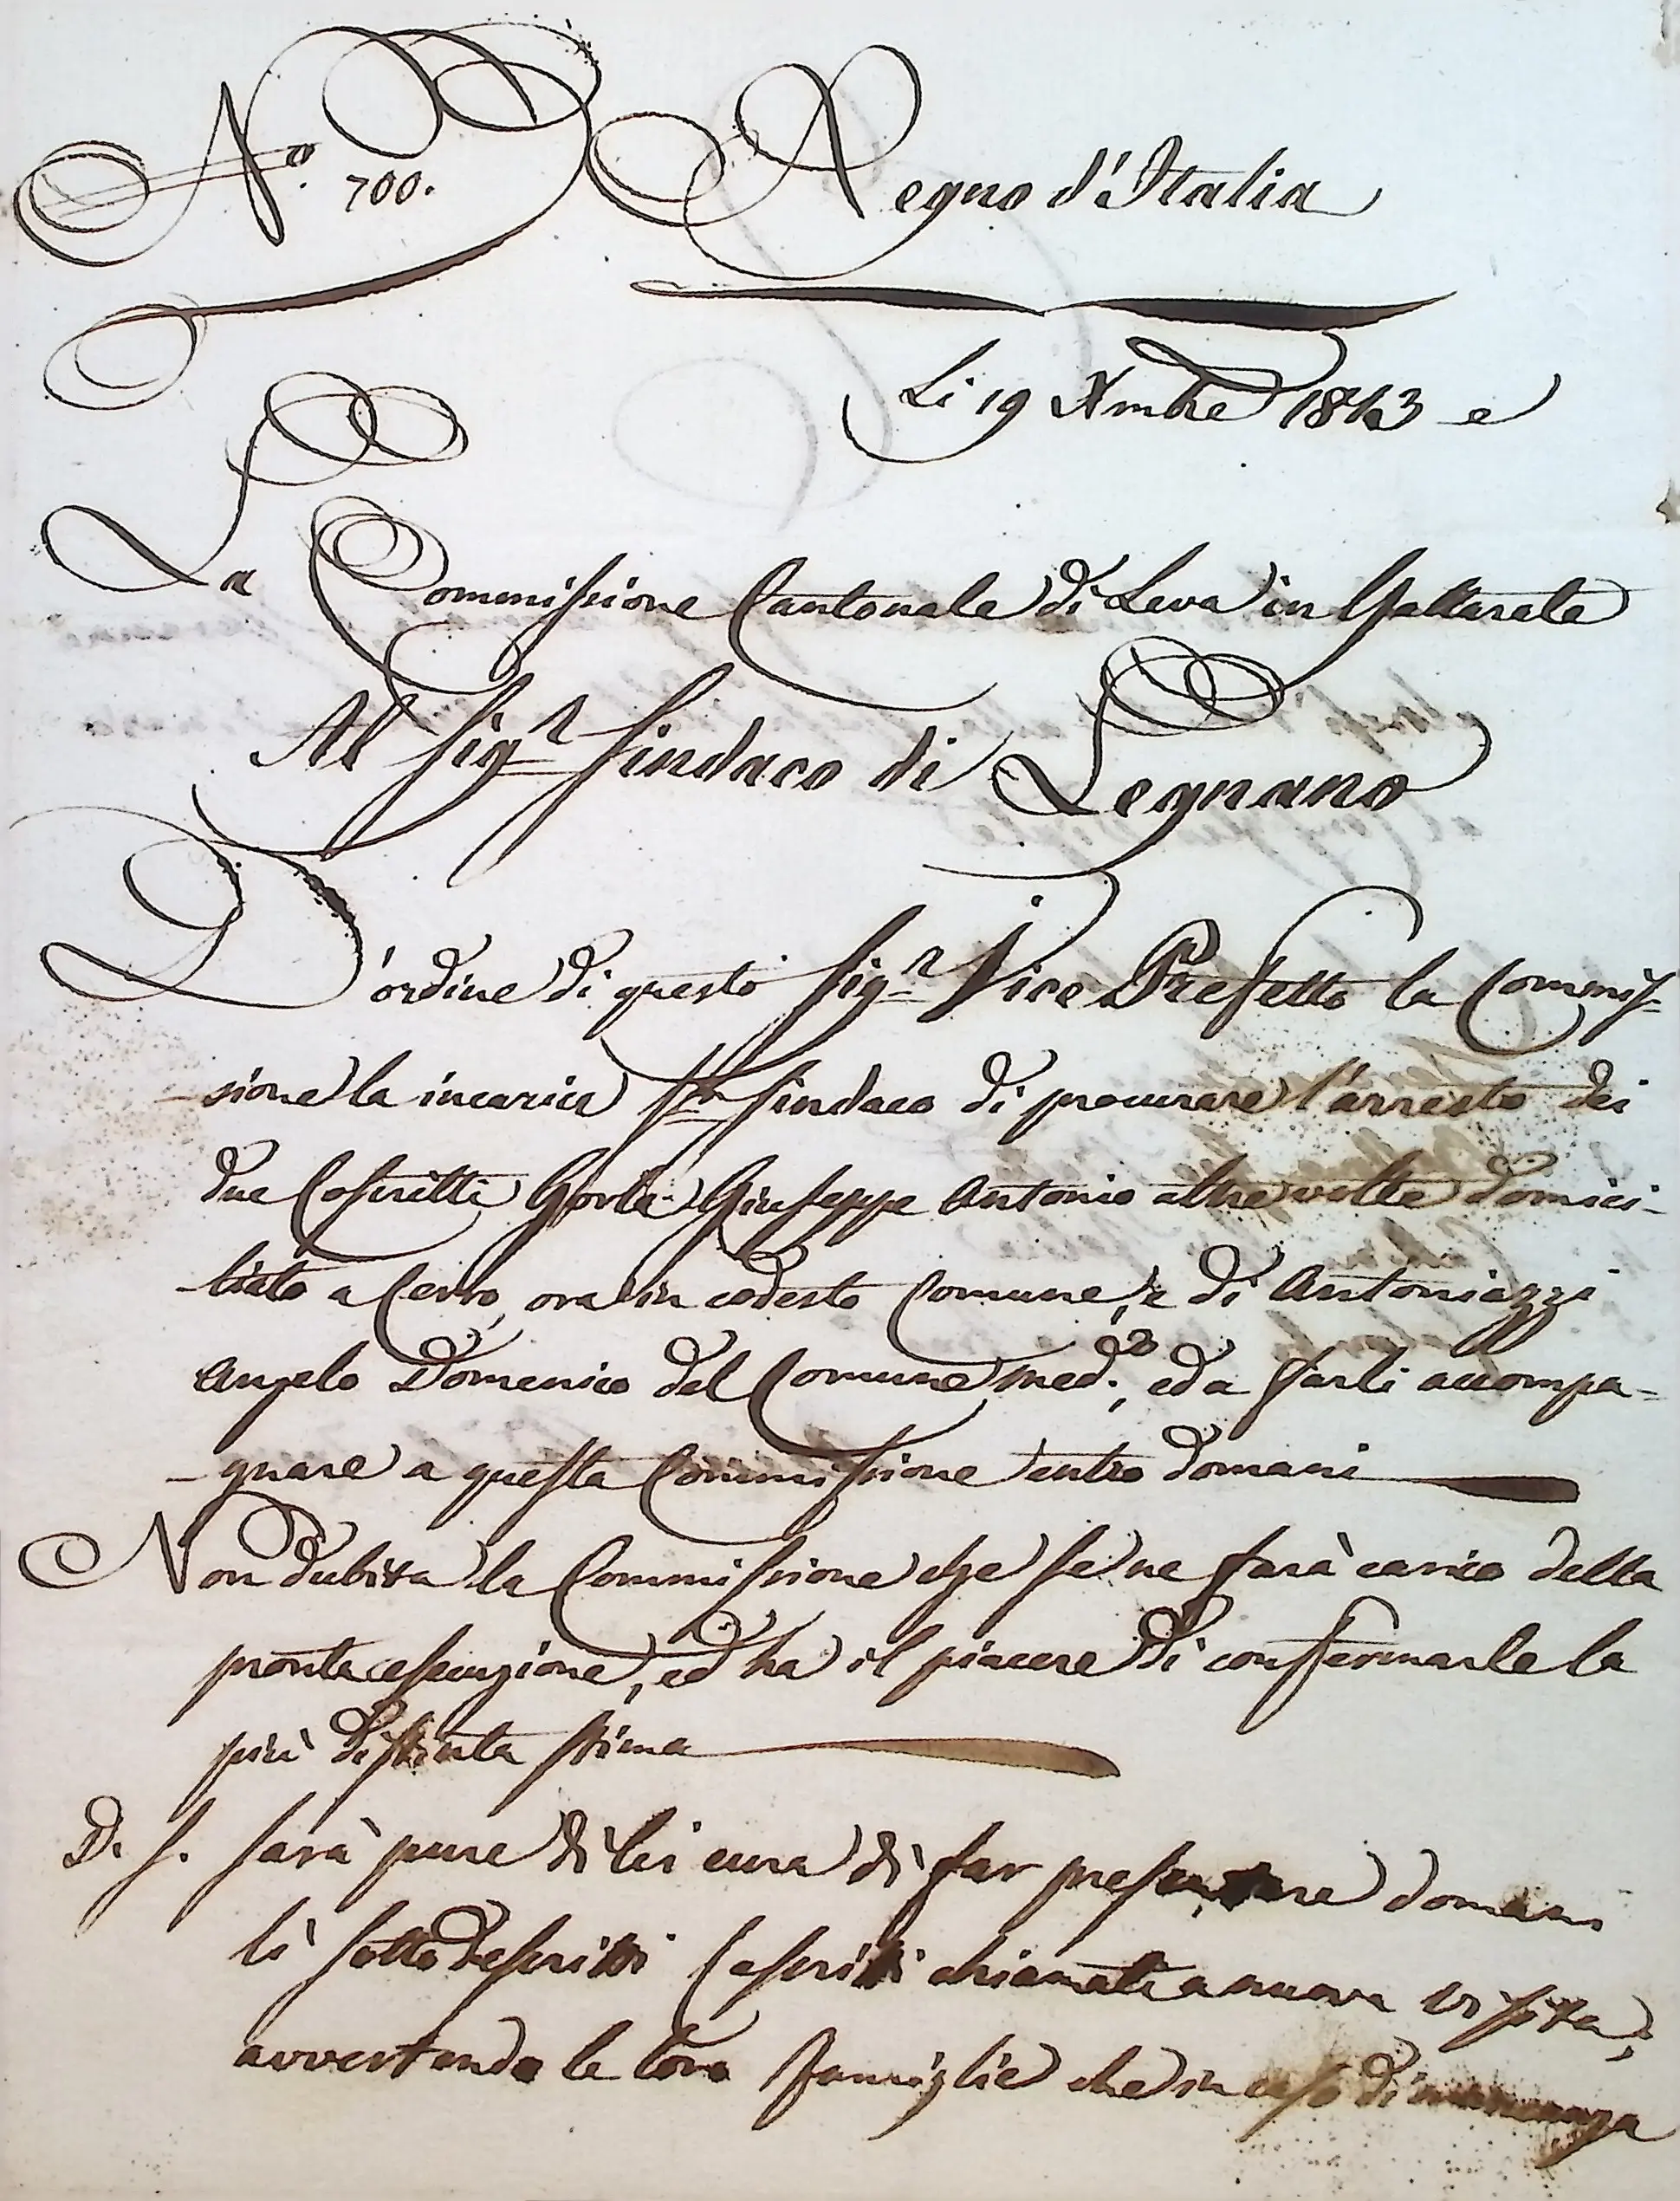 N.o 700. Regno d'Italia
Li 19 Xmbre 1813
La Commissione Cantonale di Leva in Gallarate
Al Sig.r Sindaco di Legnano
D'ordine di questo Sig.r Vice Prefetto la Commis-
-sione la incarica Sindaco di procurare l'arresto dei
due Coscritti Gorla Giuseppe Antonio altre volte domici-
-liato a Cerro, ora in codesto Comune, e di Antoniazzi
Angelo Domenico del Comune med.o, ed a farli accompa-
-gnare a questa Commissione entro domani
Non dubita la Commissione che se ne farà carico della
pronta esecuzione, ed ha il piacere di confermarle la
più distinta stima
P. S. Sarà pure di lei cura di far presentare domani
li sotto descritti Coscritti chiamati a nuova visita,
avvertendo le loro famiglie che in caso di mancanza